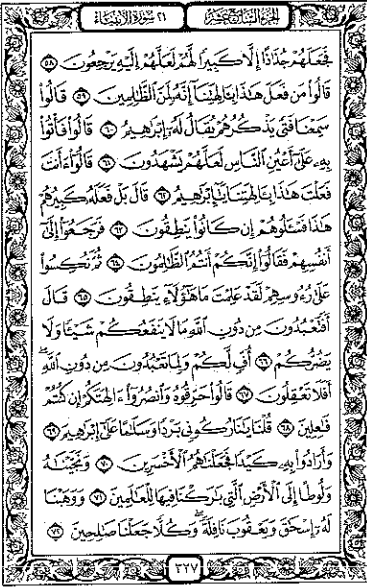 الجزء السابع عشر ٢١ سورة الأنبياء
فَجَعَلَهُمْ جُذَٰذًا إِلَّا كَبِيرًا لَّهُمْ لَعَلَّهُمْ إِلَيْهِ يَرْجِعُونَ ٥٨
قَالُوا۟ مَن فَعَلَ هَٰذَا بِـَٔالِهَتِنَآ إِنَّهُۥ لَمِنَ ٱلظَّٰلِمِينَ ٥٩ قَالُوا۟
سَمِعْنَا فَتًى يَذْكُرُهُمْ يُقَالُ لَهُۥٓ إِبْرَٰهِيمُ ٦٠ قَالُوا۟ فَأْتُوا۟
بِهِۦ عَلَىٰٓ أَعْيُنِ ٱلنَّاسِ لَعَلَّهُمْ يَشْهَدُونَ ٦١ قَالُوٓا۟ ءَأَنتَ
فَعَلْتَ هَٰذَا بِـَٔالِهَتِنَا يَٰٓإِبْرَٰهِيمُ ٦٢ قَالَ بَلْ فَعَلَهُۥ كَبِيرُهُمْ
هَٰذَا فَسْـَٔلُوهُمْ إِن كَانُوا۟ يَنطِقُونَ ٦٣ فَرَجَعُوٓا۟ إِلَىٰٓ
أَنفُسِهِمْ فَقَالُوٓا۟ إِنَّكُمْ أَنتُمُ ٱلظَّٰلِمُونَ ٦٤ ثُمَّ نُكِسُوا۟
عَلَىٰ رُءُوسِهِمْ لَقَدْ عَلِمْتَ مَا هَٰٓؤُلَآءِ يَنطِقُونَ ٦٥ قَالَ
أَفَتَعْبُدُونَ مِن دُونِ ٱللَّهِ مَا لَا يَنفَعُكُمْ شَيْـًٔا وَلَا
يَضُرُّكُمْ ٦٦ أُفٍّ لَّكُمْ وَلِمَا تَعْبُدُونَ مِن دُونِ ٱللَّهِ ۖ
أَفَلَا تَعْقِلُونَ ٦٧ قَالُوا۟ حَرِّقُوهُ وَٱنصُرُوٓا۟ ءَالِهَتَكُمْ إِن كُنتُمْ
فَٰعِلِينَ ٦٨ قُلْنَا يَٰنَارُ كُونِى بَرْدًا وَسَلَٰمًا عَلَىٰٓ إِبْرَٰهِيمَ ٦٩
وَأَرَادُوا۟ بِهِۦ كَيْدًا فَجَعَلْنَٰهُمُ ٱلْأَخْسَرِينَ ٧٠ وَنَجَّيْنَٰهُ
وَلُوطًا إِلَى ٱلْأَرْضِ ٱلَّتِى بَٰرَكْنَا فِيهَا لِلْعَٰلَمِينَ ٧١ وَوَهَبْنَا
لَهُۥٓ إِسْحَٰقَ وَيَعْقُوبَ نَافِلَةً ۖ وَكُلًّا جَعَلْنَا صَٰلِحِينَ ٧٢
٣٢٧